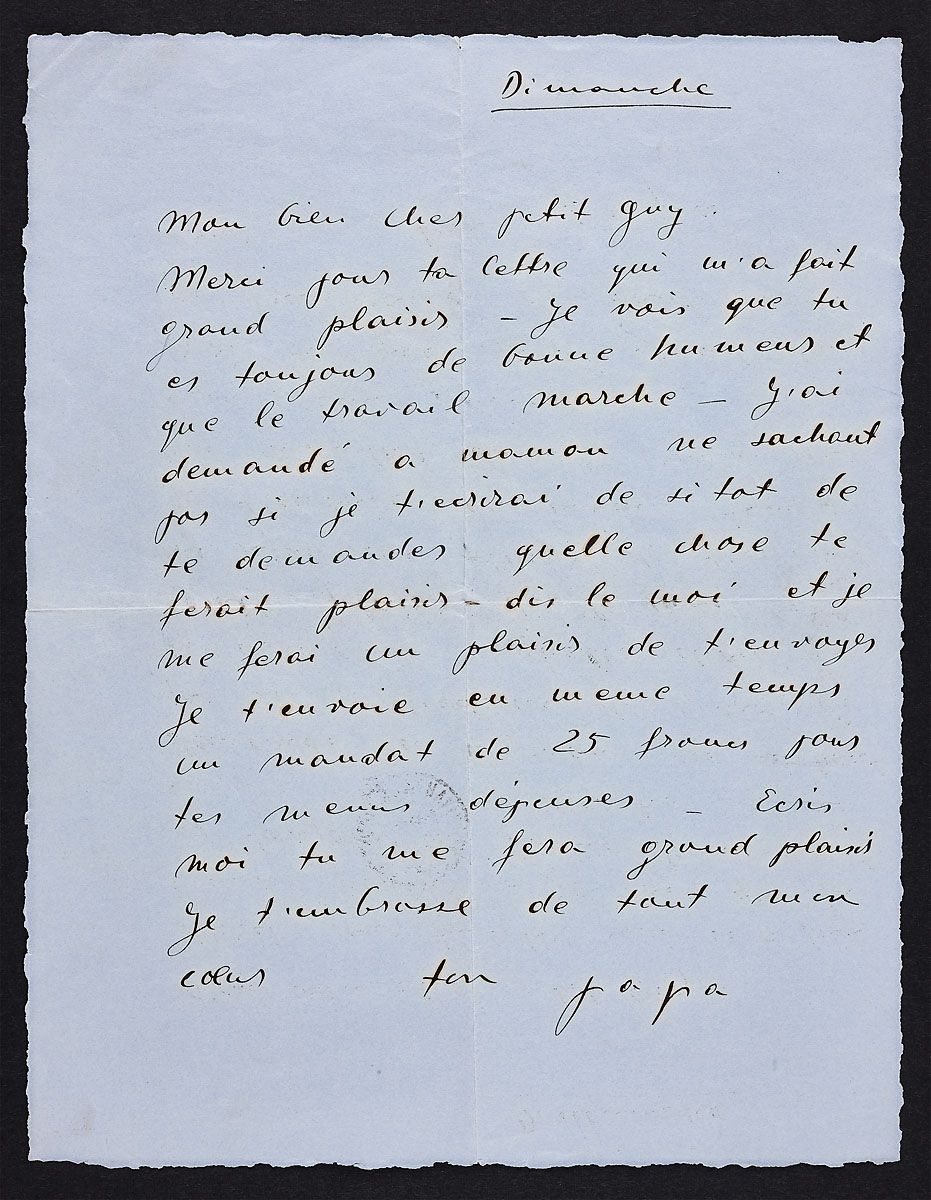 Dimanche
Mon bien cher petit Guy.
Merci pour ta lettre qui m'a fait
grand plaisir – Je vois que tu
es toujours de bonne humeur et
que le travail marche – J'ai
demandé a maman ne sachant
pas si je t'ecrirai de si tot de
te demander quelle chose te
ferait plaisir – dis le moi et je
me ferai un plaisir de t'envoyer
Je t'envoie en meme temps
un mandat de 25 francs pour
tes menus dépenses – Ecris
moi tu me fera grand plaisir
Je t'embrasse de tout mon
cœur ton papa